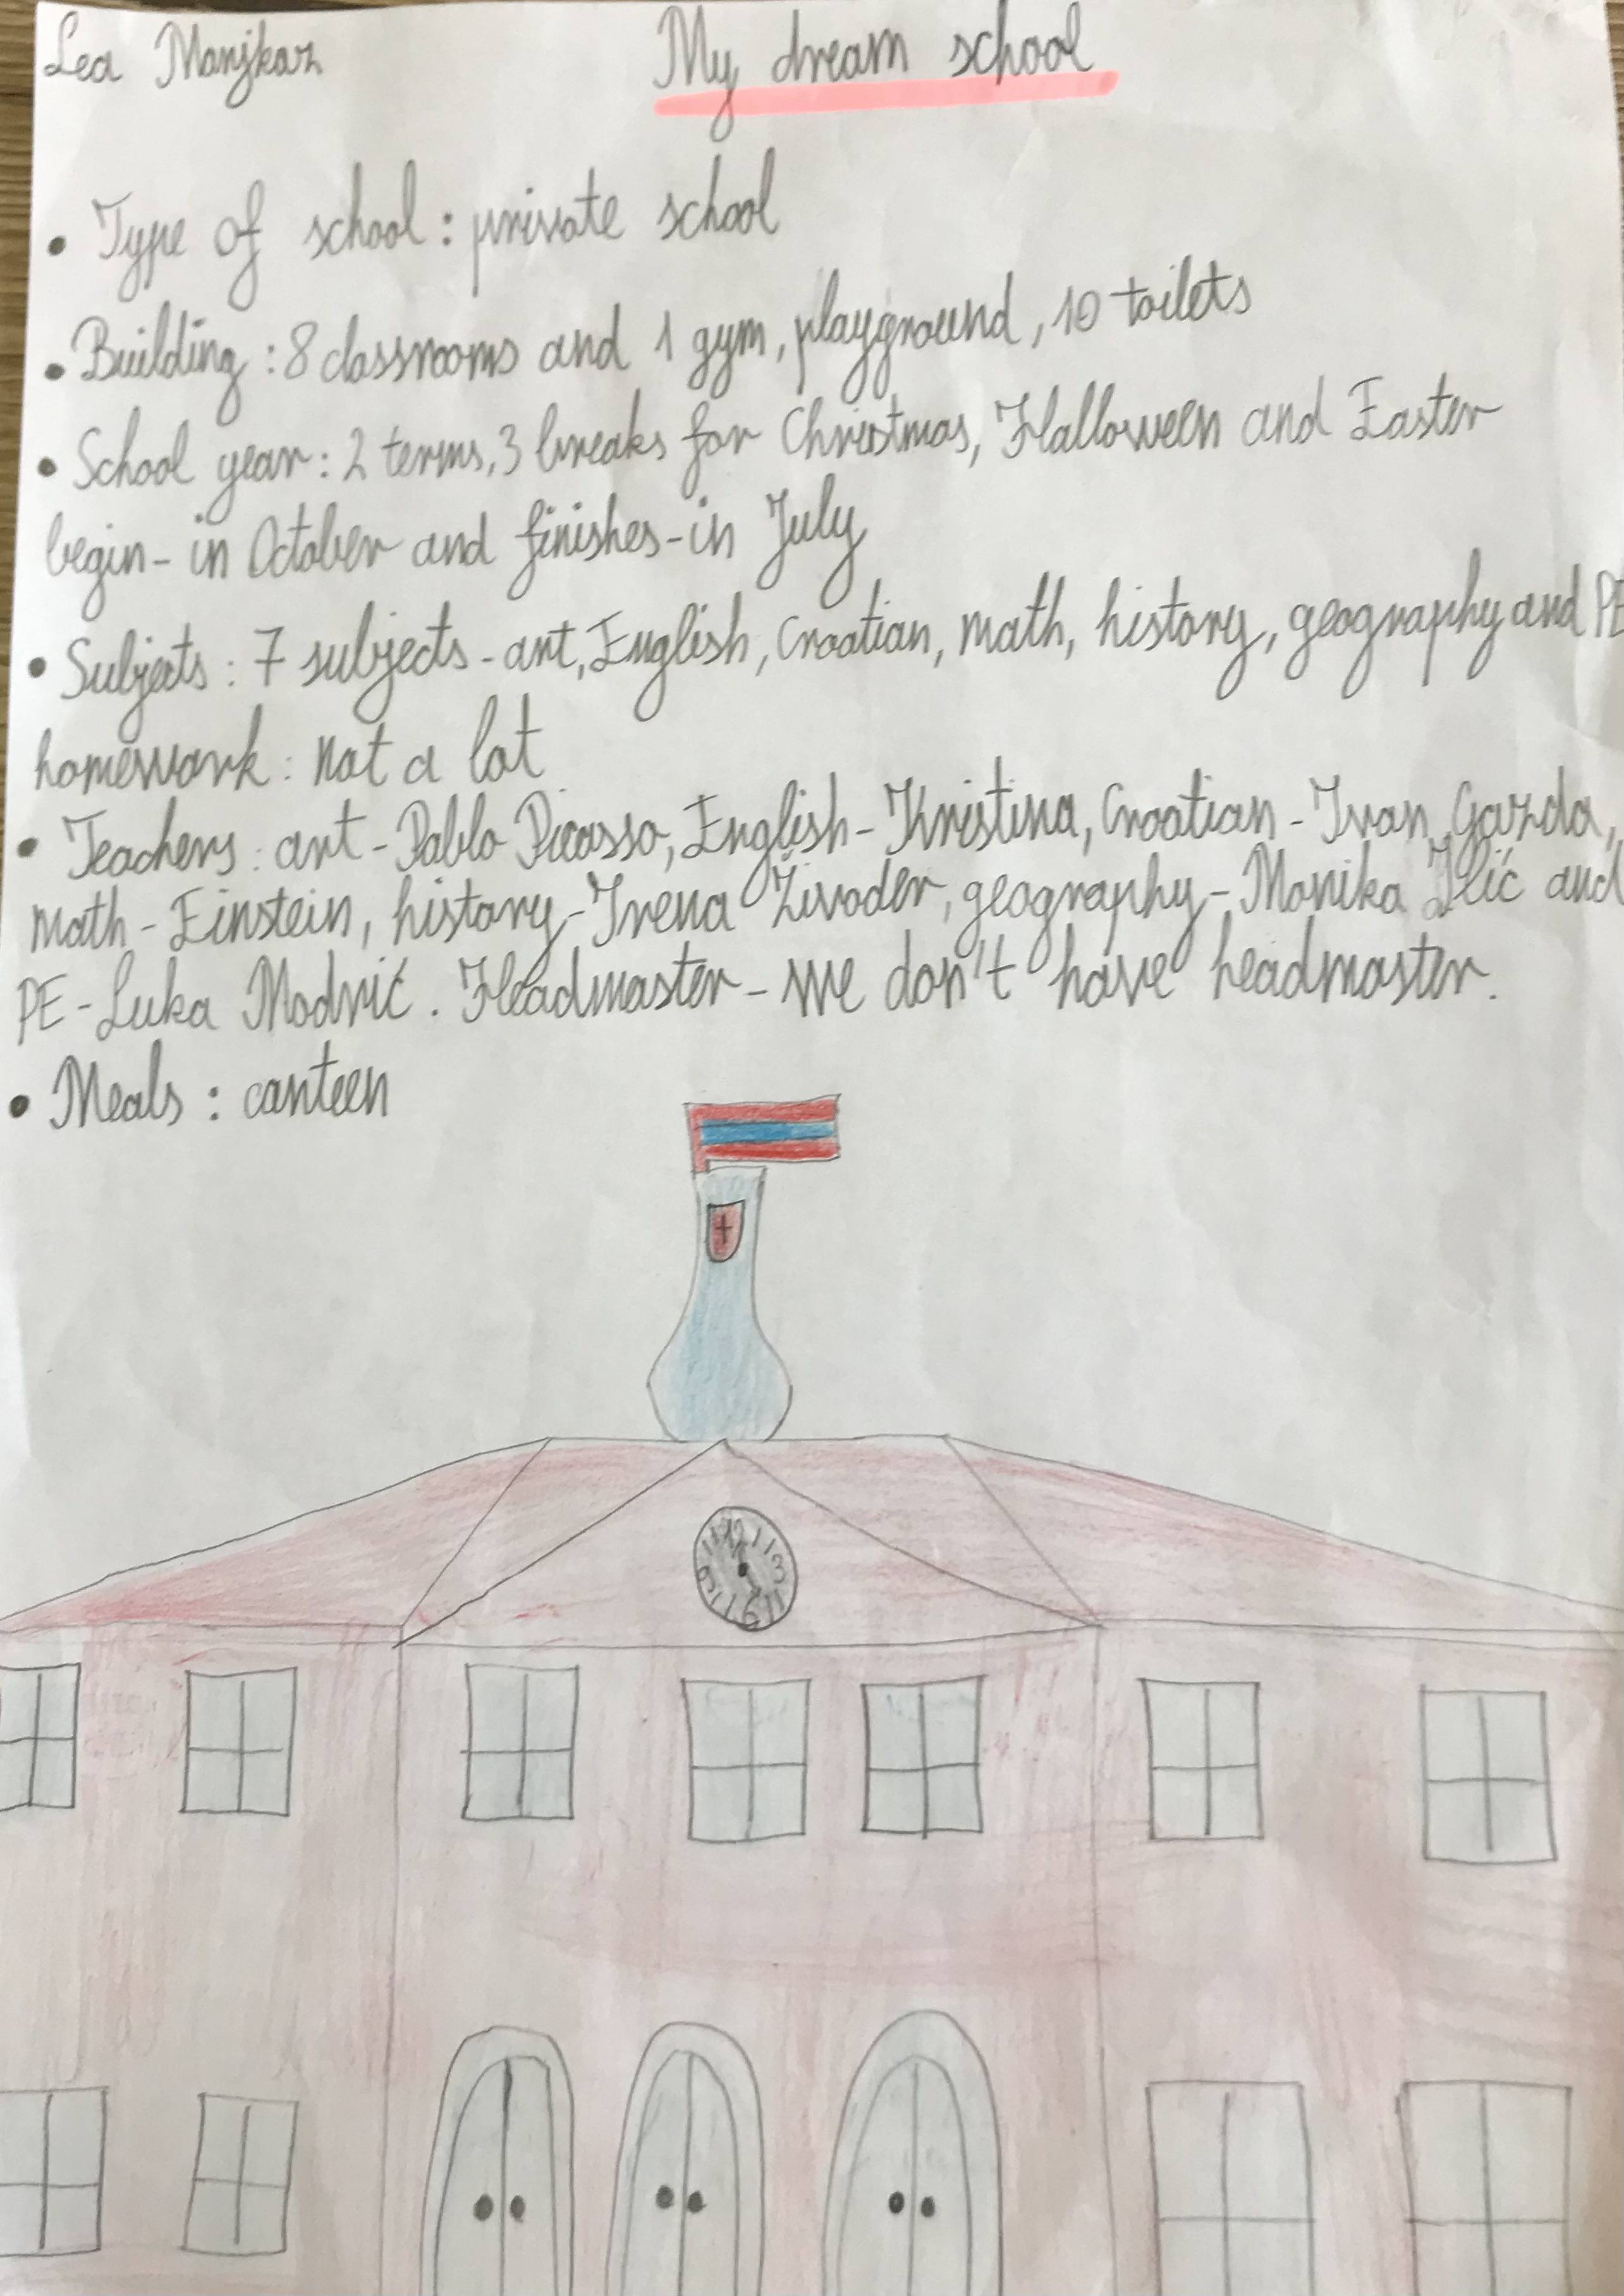 Lea Manjkaz
My dream school
• Type of school: private school
• Building: 8 classrooms and 1 gym, playground, 10 toilets
• School year: 2 terms, 3 breaks for Christmas, Halloween and Easter
begin- in October and finishes-in July
• Subjects: 7 subjects - art, English, Croatian, math, history, geography and PE
homework: not a lot
• Teachers: art-Pablo Picasso, English-Kristina, Croatian-Ivan Gazda,
math-Einstein, history-Irena Živoder, geography-Monika Ilić and
PE-Luka Modrić. Headmaster-we don't have headmaster.
• Meals: canteen
12
3
6
9